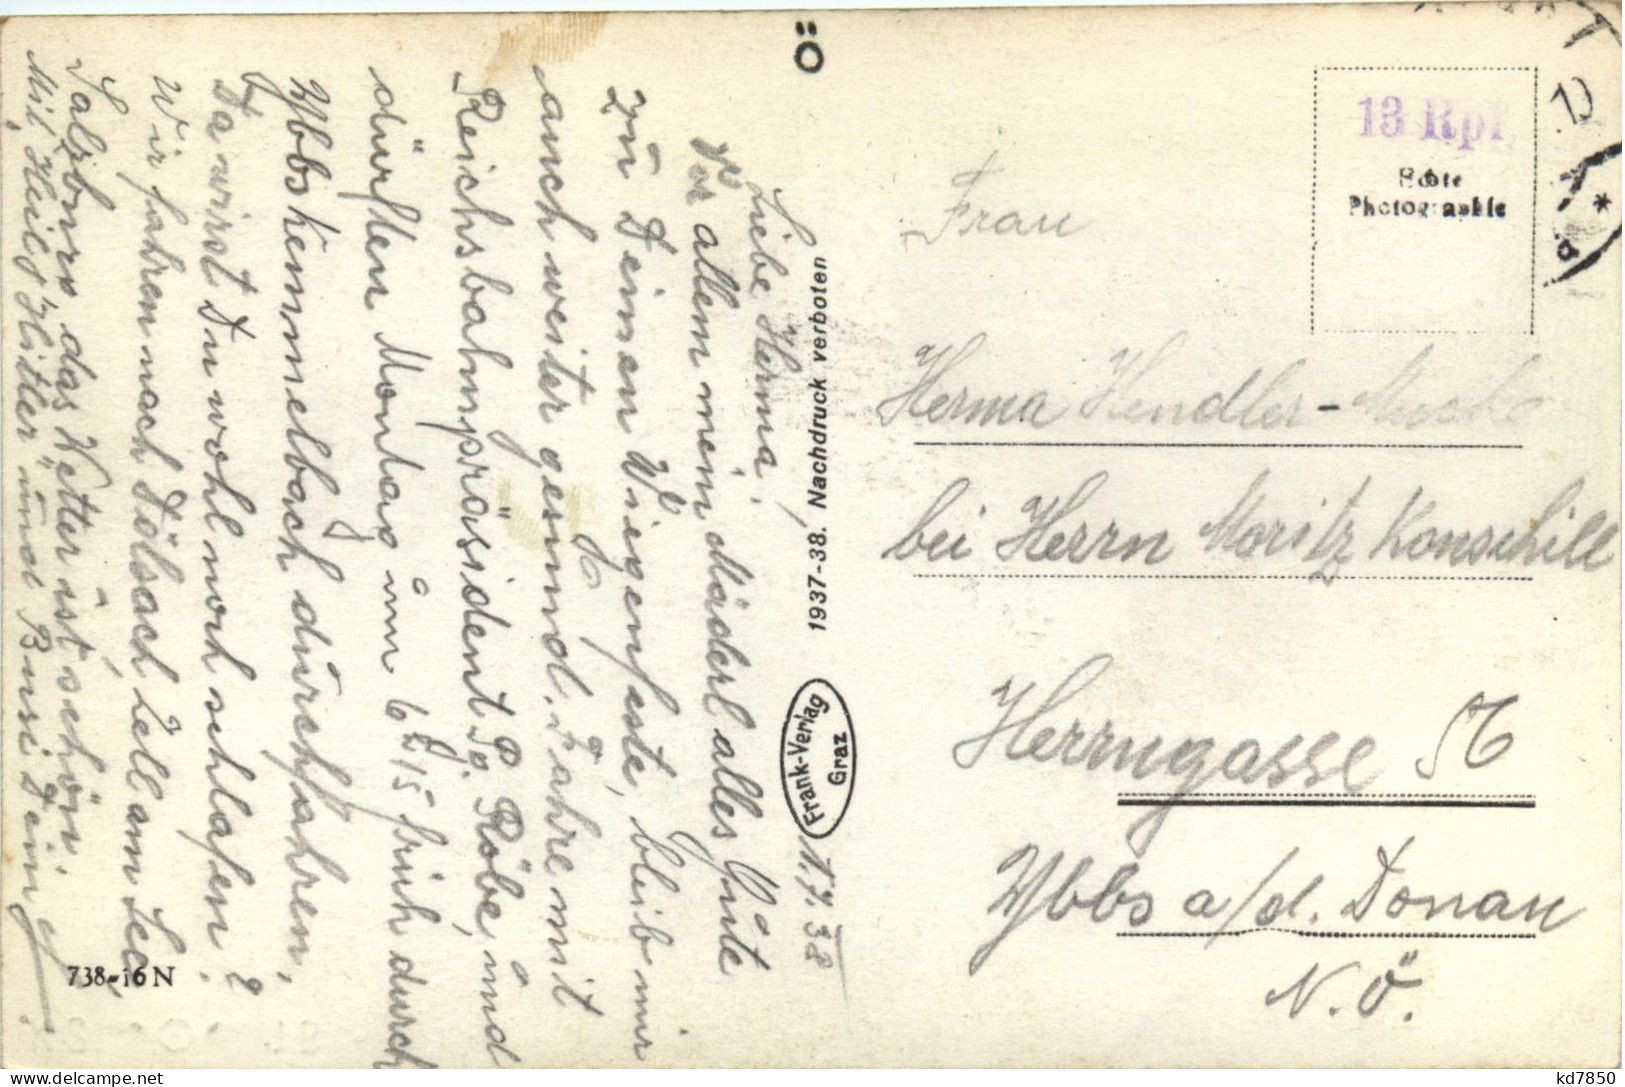 1.7.38
Liebe Herma,
Vor allem mein Mäderl alles Gute
zu Deinem Wiegenfeste, bleib mir
auch weiter gesund. Fahre mit
Reichsbahnpräsident Röbe, und
dürften Montag um 6h 15 früh durch
Ybbs Kemmelbach durchfahren,
Da wirst Du wohl noch schlafen?
Wir fahren nach Dölsach Zell am See,
Salzburg, das Wetter ist schön.
Mit Heil Hitler und Bussi Dein
738-16 N
Ö
1937-38. Nachdruck verboten
Frank-Verlag
Graz
13 Rpf
Echte
Photographie
Frau
Herma Hendler-
bei Herrn Moritz Konschill
Herrngasse
Ybbs a/d. Donau
N.Ö.
kd7850